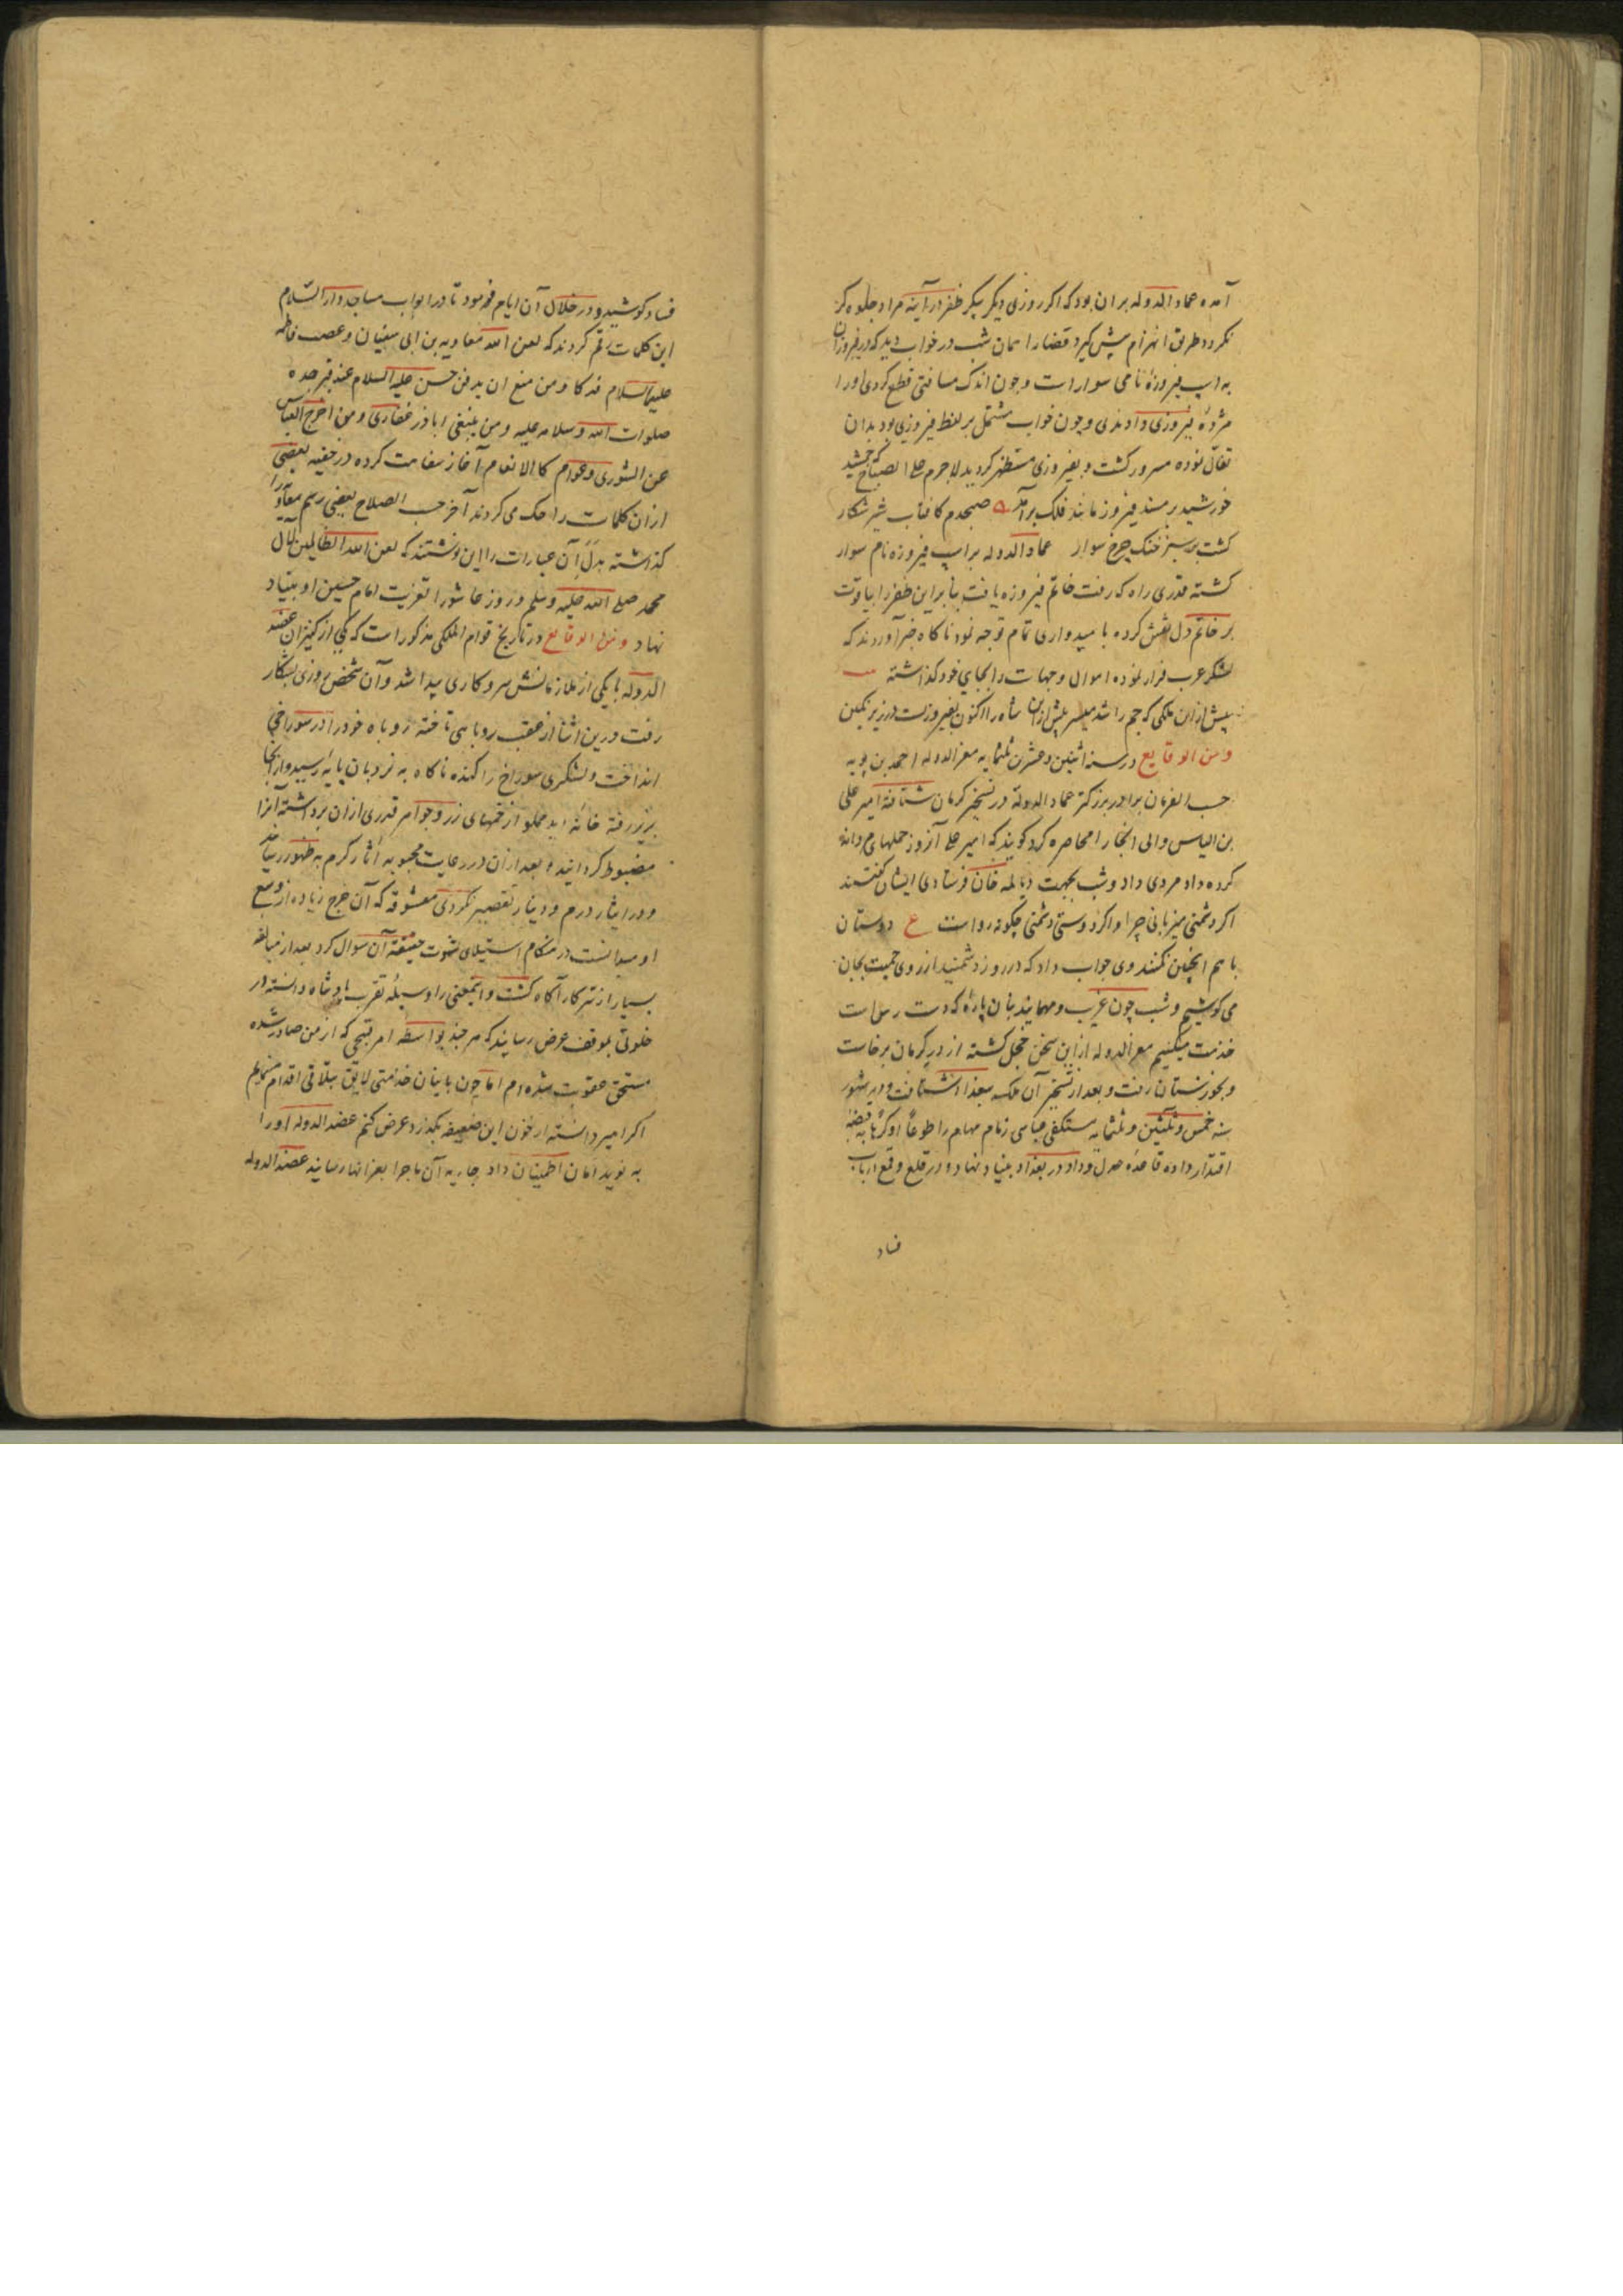 آمده عماد الدوله بران بود که اکر روزی دیکر پیکر ظفر در آینه مراد جلوه کر
نکردد طریق انهزام پیش کیرد قضارا همان شب در خواب دید که در
به اسپ فیروزه نامی سوارست و چون اندک مسافتی قطع کردی اورا
مژده فیروزی دادندی و چون خواب مشتمل بر لفظ فیروزی بود بدان
تفال نموده مسرور کشت و بفیروزی مستظهر کردید لاجرم علی الصباح که جمشید
خورشید بر مسند فیروزه مانند فلک برآمد صبحدم کافتاب شیر شکار
کشت بر سبز خنک چرخ سوار عماد الدوله بر اسپ فیروزه نام سوار
کشته قدری راه که رفت خاتم فیروزه یافت بنابراین ظفر را بیاقوت
بر خاتم دل نقش کرده بامیدواری تمام توجه نمود ناکاه خبر آوردند که
لشکر عرب فرار نموده اموال و جهات را بجای خود کذاشته
پیش ازان ملکی که جم را شد میسر پیش ازین شاه را اکنون بفیروزیست در زیر نکین
و من الوقایع در سنه اثنین و عشرین ثلثمایه معز الدوله احمد بن بویه
حسب الفرمان برادر بزرکتر عماد الدوله در تسخیر کرمان شتافته امیر علی
بن الیاس والی انجا را محاصره کرد کویند که امیر علی آنروز حملهای مردانه
کرده داد مردی داد و شب بجهت دیالمه خان فرستادی ایشان کفتند
اکر دشمنی میزبانی چرا و اکر دوستی دشمنی چکونه رواست ع دوستان
با هم اینچنین نکنند وی جواب داد که در روز دشمنید از روی حمیت بجان
می کوشیم و شب چون غریب و مهمانید بنان پاره که دست رس است
خدمت میکنیم معز الدوله ازین سخن خجل کشته از در کرمان برخاست
و بخوزستان رفت و بعد از تسخیر آن ملک ببغداد شتافت و در شهور
سنه خمس و ثلثین و ثلثمایه مستکفی عباسی زمام مهام را طوعا او کرها به قبضه
اقتدار داده قاعده عدل و داد در بغداد بنیاد نهاد و در قلع و قمع ارباب
فساد
فساد کوشید و در خلال آن ایام فرمود تا در ابواب مساجد دار السلام
این کلمات رقم کردند که لعن الله معاویه بن ابی سفیان و غصب فاطمه
علیها السلام فدکا و من منع ان یدفن حسن علیه السلام عند قبر جده
صلوات الله و سلامه علیه و من ینفی اباذر غفاری و من اخرج العباس
عن الشوری و عوام کالانعام آغاز سفاهت کرده در خفیه بعضی
ازان کلمات را حک می کردند آخر حسب الصلاح بعضی رسم معاویه را
کذاشته بدل آن عبارات را این نوشتند که لعن الله الظالمین لآل
محمد صلی الله علیه وسلم و روز عاشورا تعزیت امام حسین او بنیاد
نهاد و من الوقایع در تاریخ قوام الملکی مذکور است که یکی از کنیزان عضد
الدوله با یکی از ملازمانش سر و کاری پیدا شد و آن شخص روزی بشکار
رفت درین اثنا از عقب روباهی تاخته روباه خود را در سوراخی
انداخت و لشکری سوراخ را کنده ناکاه به نردبان پایه رسید و از انجا
بزیر رفته خانه دید مملو از خمهای زر و جواهر قدری ازان برداشته آنرا
مضبوط کردانید و بعد ازان در رعایت محبوبه آثار کرم به ظهور رسانید
و در ایثار درم و دینار تقصیر نکردی معشوقه که آن خرج زیاده از وسع
او میدانست در هنکام استیلای شهوت حقیقة آن سوال کرد بعد از مبالغه
بسیار از سر کار آکاه کشت و اینمعنی را وسیله تقرب پادشاه دانسته در
خلوتی بموقف عرض رسانید که هر چند بواسطه امر قبیحی که از من صادر شده
مستحق عقوبت شده ام اما چون باینان خدمتی لایق بتلافی اقدام مینمایم
اکر امیر دانسته از خون این ضعیفه بکذرد عرض کنم عضد الدوله اورا
به نوید امان اطمینان داد جاریه آن ماجرا بعز انها رسانید عضد الدوله